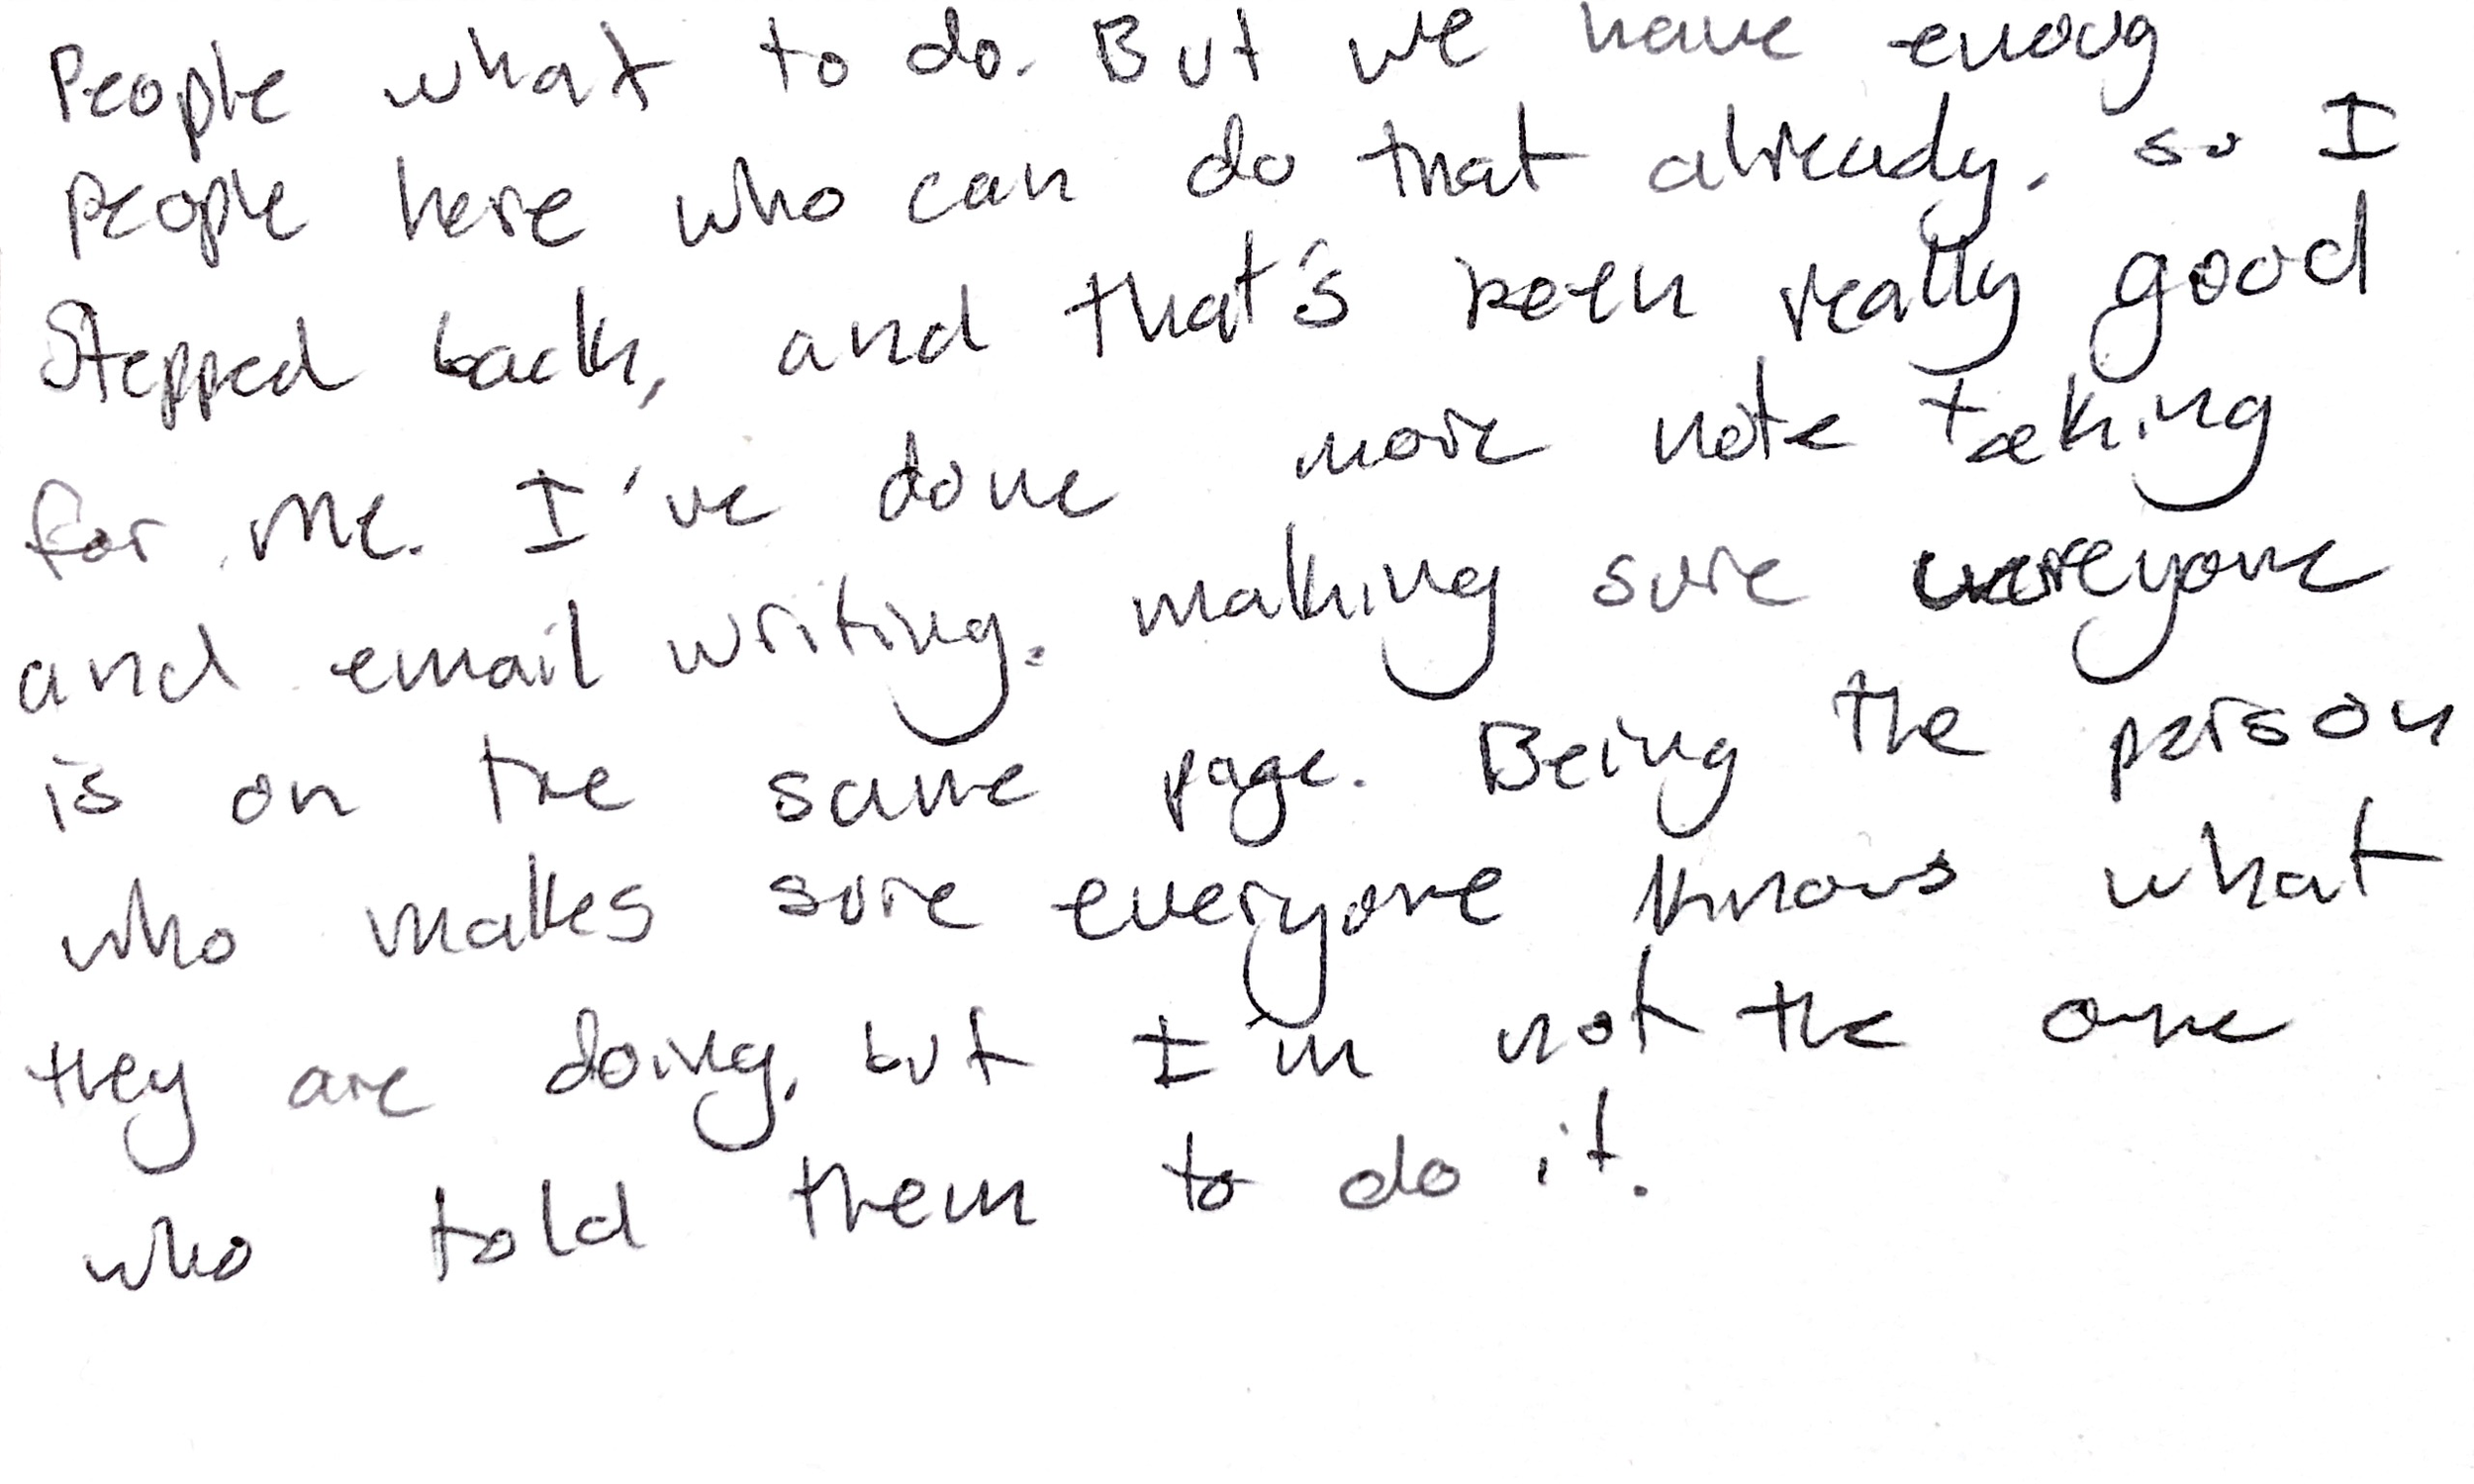 People what to do. But we have enoug
people here who can do that already. so I
stepped back, and that's been really good
for me. I've done more note taking
and email writing. making sure everyone
is on the same page. Being the person
who makes sure everyone knows what
they are doing, but I'm not the one
who told them to do it.